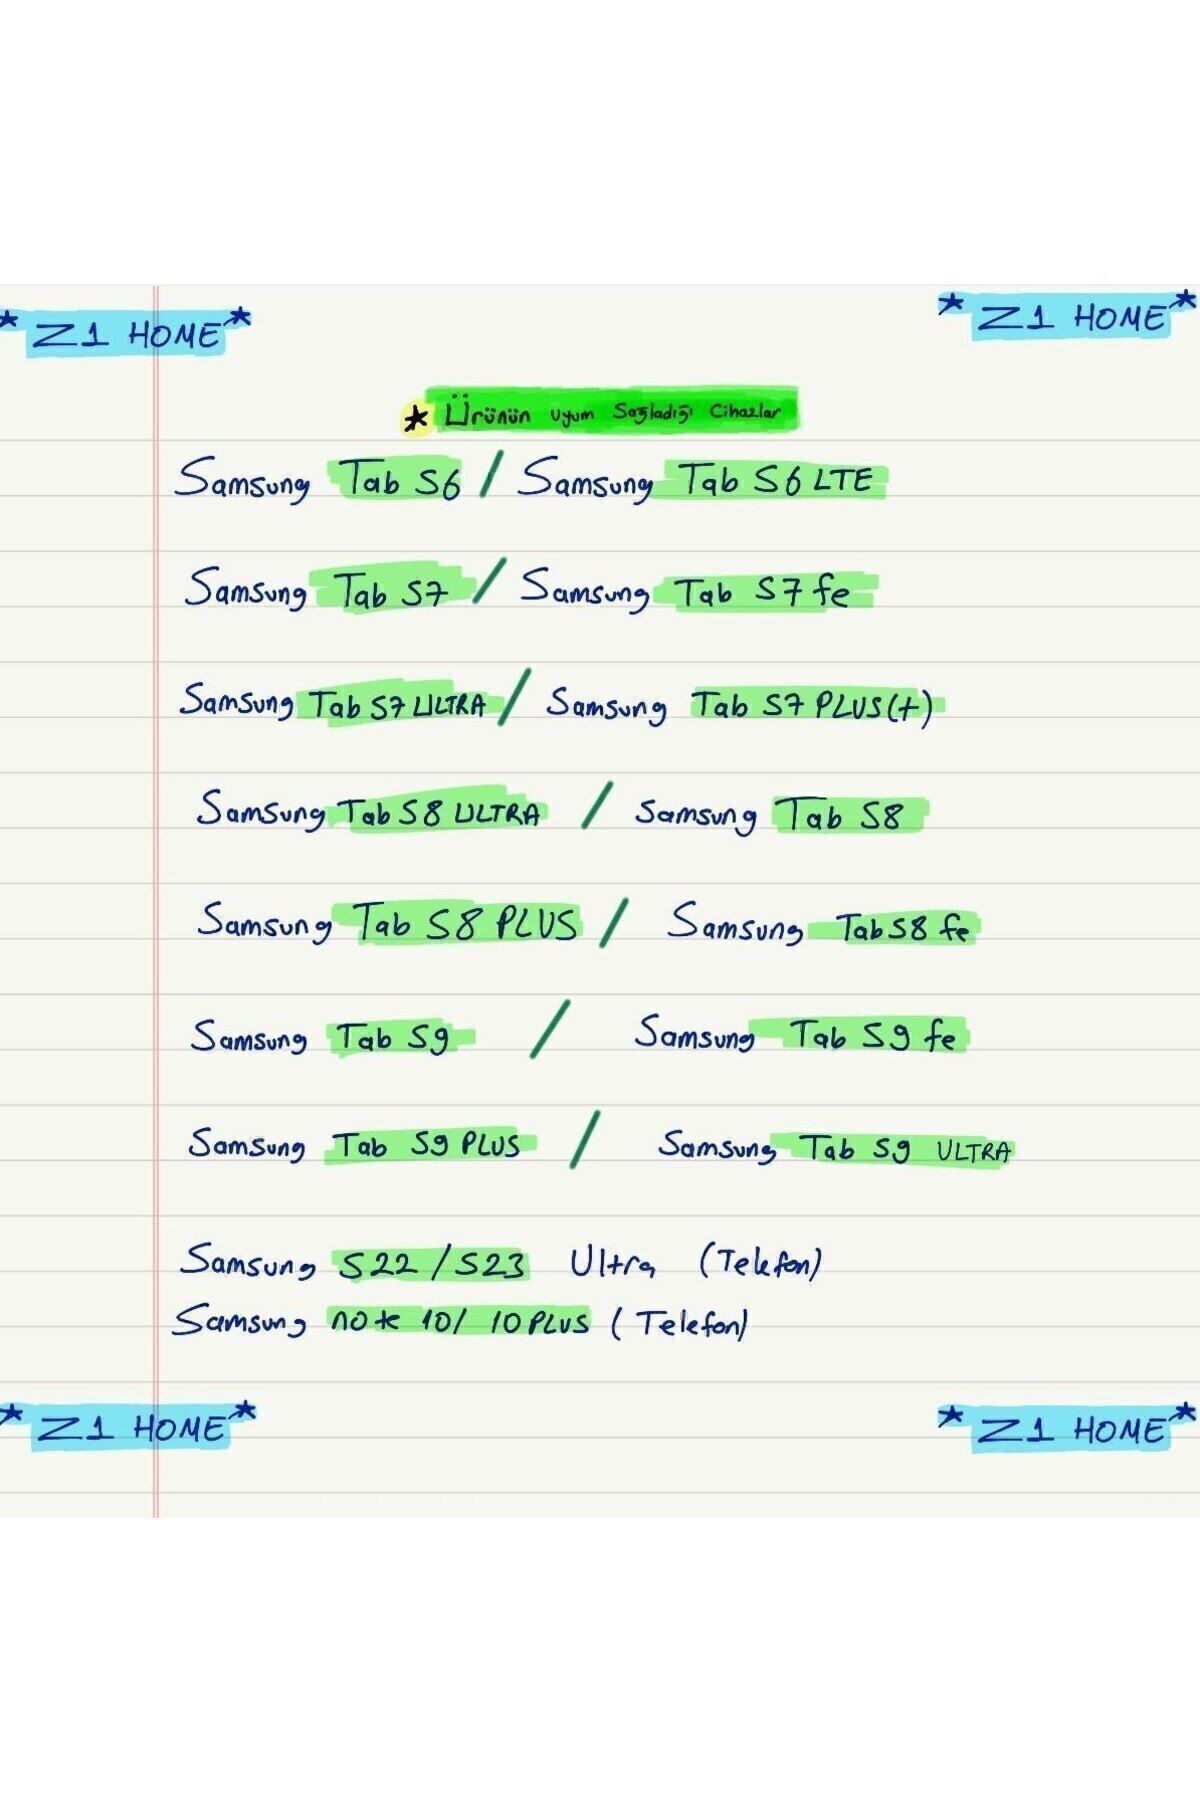 * Z1 HOME *
* Z1 HOME *
* Ürünün uyum Sağladığı Cihazlar
Samsung Tab S6 / Samsung Tab S6 LTE
Samsung Tab S7 / Samsung Tab S7 fe
Samsung Tab S7 ULTRA / Samsung Tab S7 PLUS(+)
Samsung Tab S8 ULTRA / Samsung Tab S8
Samsung Tab S8 PLUS / Samsung Tab S8 fe
Samsung Tab S9 / Samsung Tab S9 fe
Samsung Tab S9 PLUS / Samsung Tab S9 ULTRA
Samsung S22 / S23 Ultra (Telefon)
Samsung note 10 / 10 PLUS (Telefon)
* Z1 HOME *
* Z1 HOME *